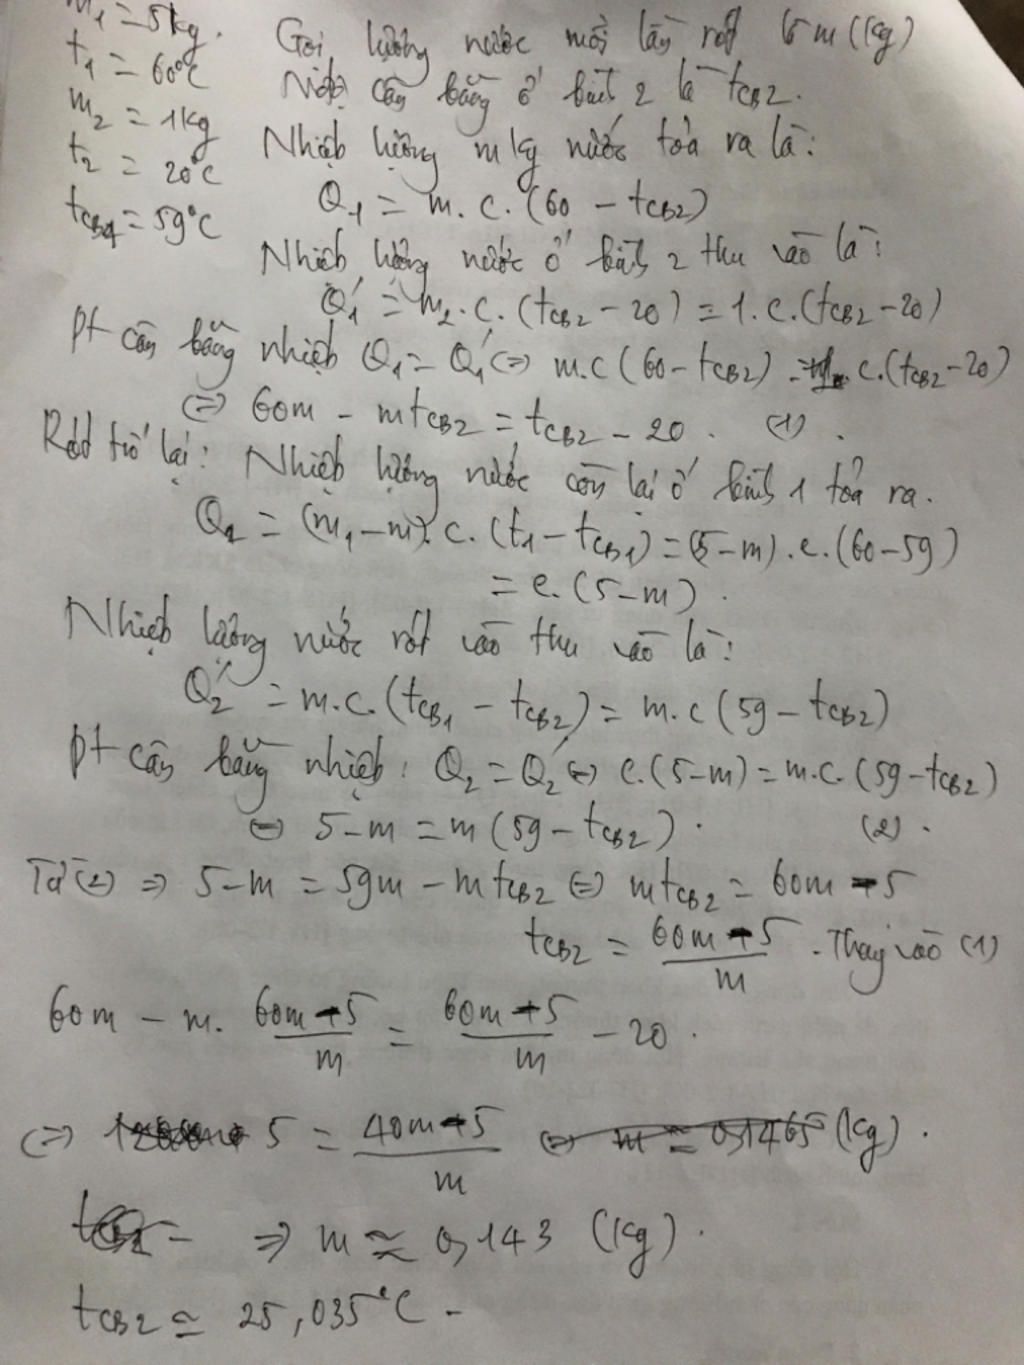 m₁ = 5kg.
t₁ = 60°C
m₂ = 1kg
t₂ = 20°C
tCB1 = 59°C
Gọi lượng nước mỗi lần rót là m (kg)
Nhiệt độ cân bằng ở bình 2 là tCB2.
Nhiệt lượng m kg nước tỏa ra là:
Q₁ = m.c.(60 - tCB2)
Nhiệt lượng nước ở bình 2 thu vào là:
Q₁' = m₂.c.(tCB2 - 20) = 1.c.(tCB2 - 20)
Pt cân bằng nhiệt Q₁ = Q₁' ⇔ m.c(60 - tCB2) = c.(tCB2 - 20)
⇔ 60m - mtCB2 = tCB2 - 20. (1).
Rót trở lại: Nhiệt lượng nước còn lại ở bình 1 tỏa ra.
Q₂ = (m₁ - m).c.(t₁ - tCB1) = (5 - m).c.(60 - 59)
= c.(5 - m).
Nhiệt lượng nước rót vào thu vào là:
Q₂' = m.c.(tCB1 - tCB2) = m.c(59 - tCB2)
Pt cân bằng nhiệt: Q₂ = Q₂' ⇔ c.(5 - m) = m.c.(59 - tCB2)
⇔ 5 - m = m(59 - tCB2). (2).
Từ (2) ⇒ 5 - m = 59m - mtCB2 ⇔ mtCB2 = 60m - 5
tCB2 = (60m - 5)/m. Thay vào (1)
60m - m.(60m - 5)/m = (60m - 5)/m - 20.
⇔ 5 = (40m - 5)/m ⇔ m ≈ 0,1465 (kg).
⇒ m ≈ 0,143 (kg).
tCB2 ≈ 25,035°C -